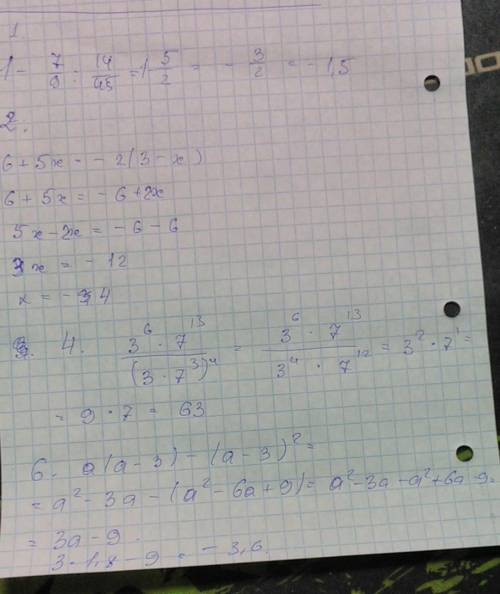 1
1 - 7/9 : 14/45 = 1 - 5/2 = - 3/2 = - 1,5
2.
6 + 5x = - 2(3 - x)
6 + 5x = - 6 + 2x
5x - 2x = - 6 - 6
3x = - 12
x = - 4
4. 3⁶ · 7¹³ / (3 · 7³)⁴ = 3⁶ · 7¹³ / 3⁴ · 7¹² = 3² · 7¹ =
= 9 · 7 = 63
6. a(a - 3) - (a - 3)² =
= a² - 3a - (a² - 6a + 9) = a² - 3a - a² + 6a - 9 =
= 3a - 9.
3 · 1,8 - 9 = - 3,6.